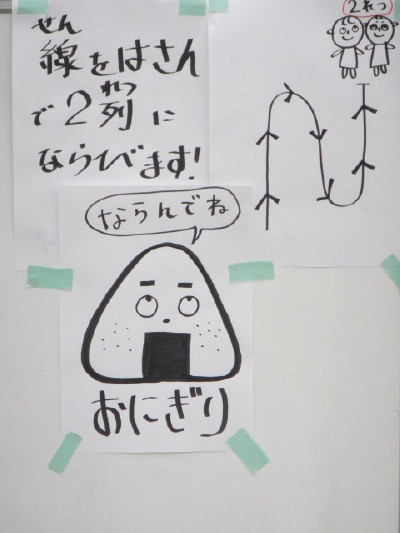 せん
線をはさん
れつ
で2列に
ならびます!
2れつ
ならんでね
おにぎり